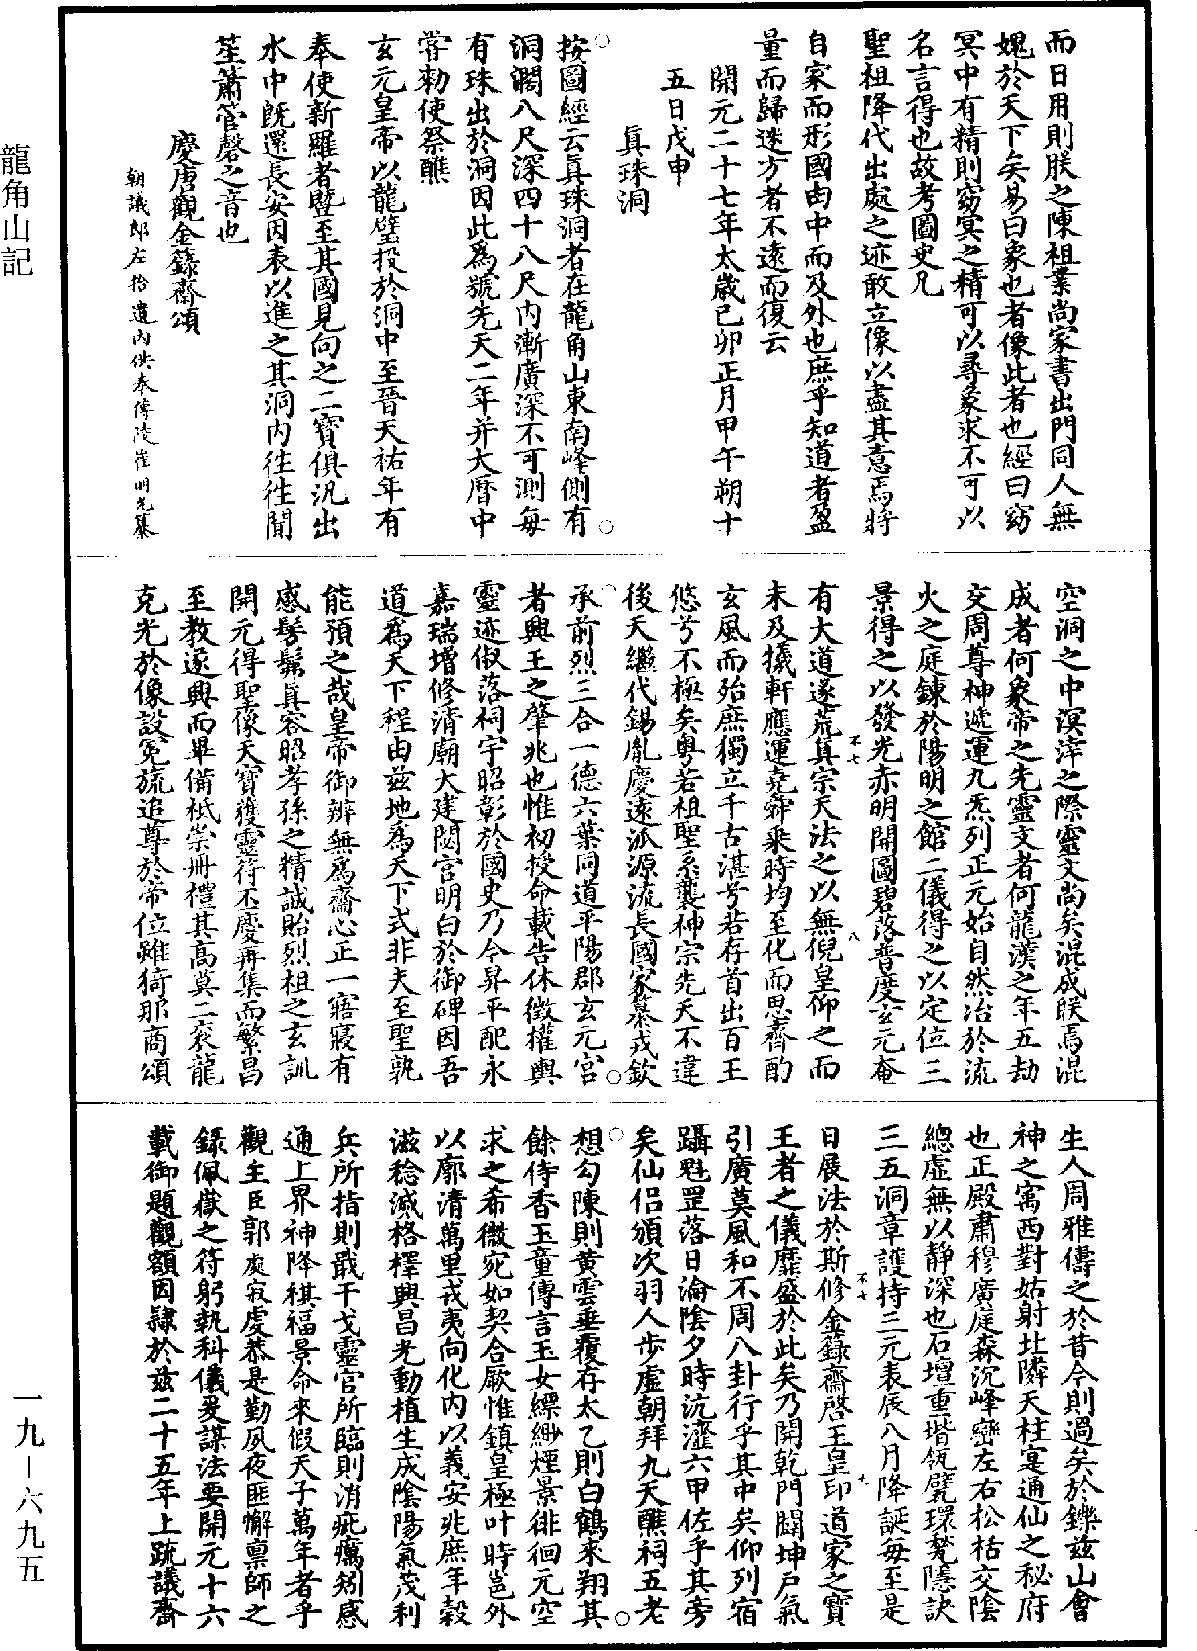 龍角山記
而日用則朕之陳祖業尚家書出門同人無
媿於天下矣易曰象也者像此者也經曰窈
冥中有精則窈冥之精可以尋象求不可以
名言得也故考圖史凡
聖祖降代出處之迹敢立像以盡其意焉將
自家而形國由中而及外也庶乎知道者盈
量而歸迷方者不遠而復云
開元二十七年太歲己卯正月甲午朔十
五日戊申
真珠洞
按圖經云真珠洞者在龍角山東南峰側有
洞濶八尺深四十八尺內漸廣深不可測每
有珠出於洞因此為號先天二年并大曆中
嘗勑使祭醮
玄元皇帝以龍璧投於洞中至晉天祐年有
奉使新羅者暨至其國見向之二寶俱汎出
水中既還長安因表以進之其洞內往往聞
笙簫管磬之音也
慶唐觀金籙齋頌
朝議郎左拾遺內供奉博陵崔明允纂
空洞之中溟涬之際靈文尚矣混成朕焉混
成者何象帝之先靈文者何龍漢之年五劫
交周尊神遞運九炁列正元始自然治於流
火之庭鍊於陽明之館二儀得之以定位三
景得之以發光赤明開圖碧落普度玄元奄
有大道遂荒真宗天法之以無倪皇仰之而
未及攁軒應運堯舜乘時均至化而思齊酌
玄風而殆庶獨立千古湛兮若存首出百王
悠兮不極矣粵若祖聖系襲神宗先天不違
後天繼代錫胤慶遠派源流長國家纂戎欽
承前烈三合一德六葉同道平陽郡玄元宮
者興王之肇兆也惟初授命載告休徵權輿
靈迹俶落祠宇昭彰於國史乃今昇平配永
嘉瑞增修清廟大建閟宮明白於御碑因吾
道為天下程由茲地為天下式非夫至聖孰
能預之哉皇帝御辨無為齋心正一寤寐有
感髣髴真容昭孝孫之精誠貽烈祖之玄訓
開元得聖像天寶獲靈符丕慶再集而繁昌
至教遂興而畢備祇崇冊禮其高莫二袞龍
克光於像設冕旒追尊於帝位雖猗那商頌
生人周雅儔之於昔今則過矣於鑠茲山會
神之寓西對姑射北隣天柱寔通仙之秘府
也正殿肅穆廣庭森沉峰巒左右松栝交陰
總虛無以靜深也石壇重堦瓴甓環甃隱訣
三五洞章護持三元表辰八月降誕每至是
日展法於斯修金籙齋啓玉皇印道家之寶
王者之儀靡盛於此矣乃開乾門闢坤戶氣
引廣莫風和不周八卦行乎其中矣仰列宿
躡魁罡落日淪陰夕時沆瀣六甲佐乎其旁
矣仙侶頒次羽人步虛朝拜九天醮祠五老
想勾陳則黃雲垂覆存太乙則白鶴來翔其
餘侍香玉童傳言玉女縹緲煙景徘徊元空
求之希微宛如契合厥惟鎮皇極叶時邕外
以廓清萬里戎夷向化內以義安兆庶年穀
滋稔滅格檡興昌光動植生成陰陽氣茂利
兵所指則戢干戈靈官所臨則消疵癘夠感
通上界神降祺福景命來假天子萬年者乎
觀主臣郭處寂虔恭是勤夙夜匪懈禀師之
錄佩嶽之符躬執科儀爰謀法要開元十六
載御題觀額因隸於茲二十五年上疏議齋
不七
八
不七
九
一九—六九五